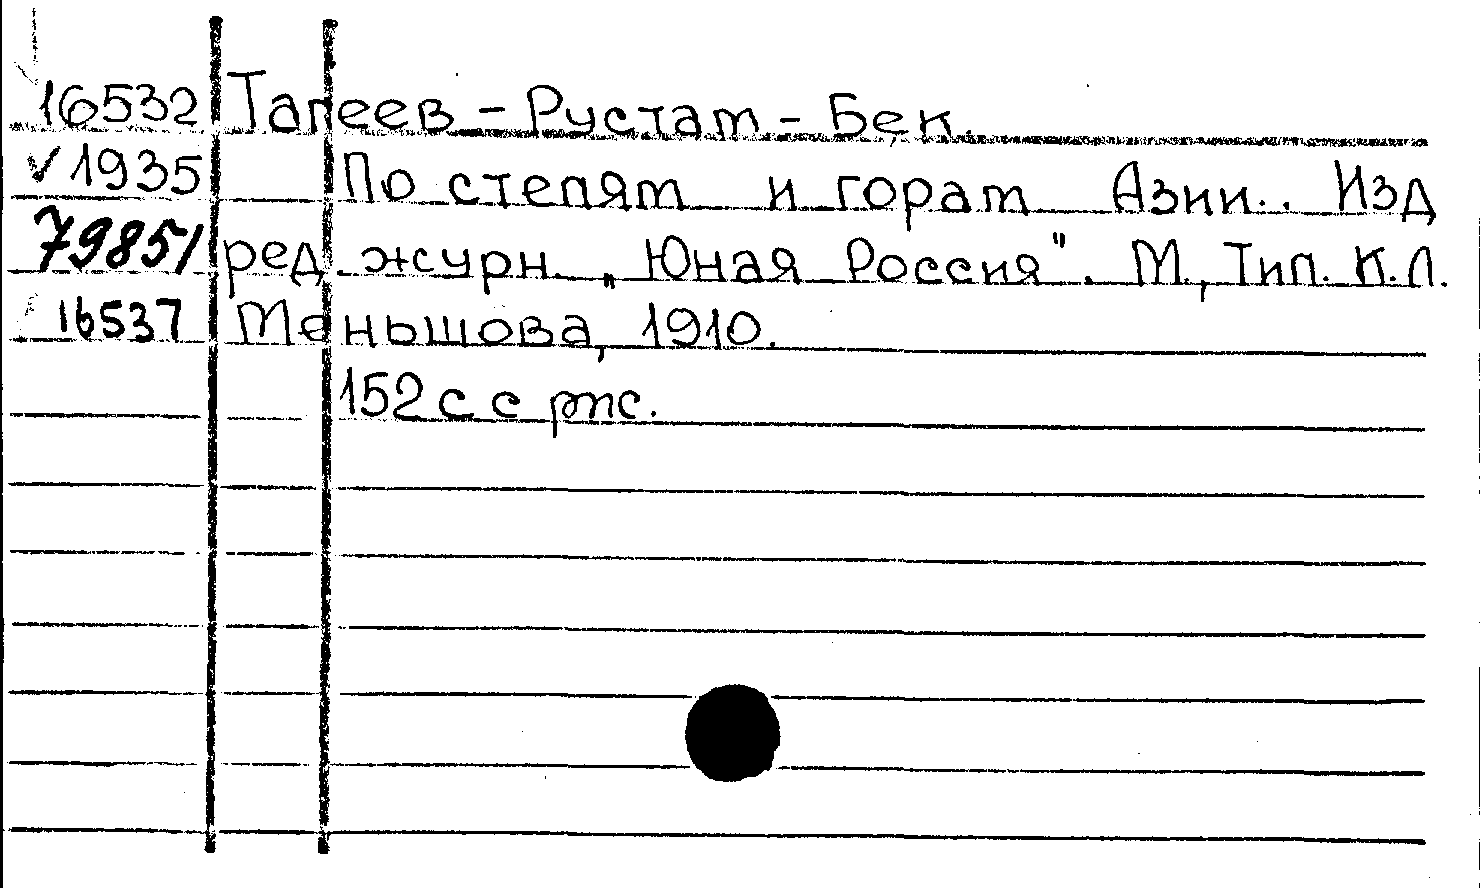 16532 Тагеев - Рустам - Бек.
✓ 1935 По степям и горам Азии.. Изд
79851 ред. журн. „Юная Россия". М., Тип. К.Л.
16537 Меньшова, 1910.
152 с с рис.